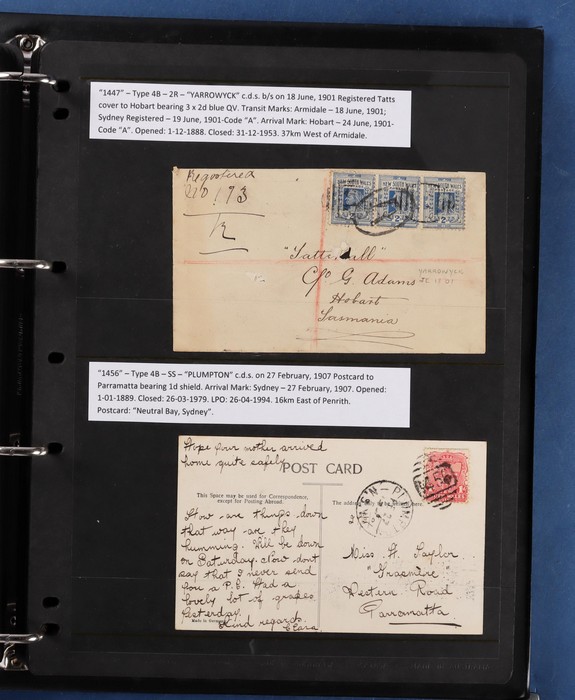 "1447" – Type 4B – 2R – "YARROWYCK" c.d.s. b/s on 18 June, 1901 Registered Tatts
cover to Hobart bearing 3 x 2d blue QV. Transit Marks: Armidale – 18 June, 1901;
Sydney Registered – 19 June, 1901-Code "A". Arrival Mark: Hobart – 24 June, 1901-
Code "A". Opened: 1-12-1888. Closed: 31-12-1953. 37km West of Armidale.
Registered
R
"Tattersall"
C/o G. Adams
Hobart
Tasmania
YARROWYCK
NEW SOUTH WALES
"1456" – Type 4B – SS – "PLUMPTON" c.d.s. on 27 February, 1907 Postcard to
Parramatta bearing 1d shield. Arrival Mark: Sydney – 27 February, 1907. Opened:
1-01-1889. Closed: 26-03-1979. LPO: 26-04-1994. 16km East of Penrith.
Postcard: "Neutral Bay, Sydney".
Hope your mother arrived
home quite safely
POST CARD
This Space may be used for Correspondence,
except for Posting Abroad.
The address only to be written here.
How are things down
that way are they
humming. Will be down
on Saturday. Now dont
say that I never send
you a P.C. Had a
lovely lot of grapes
yesterday.
Kind regards
Clara
Miss H. Taylor
"Grasmere"
Western Road
Parramatta